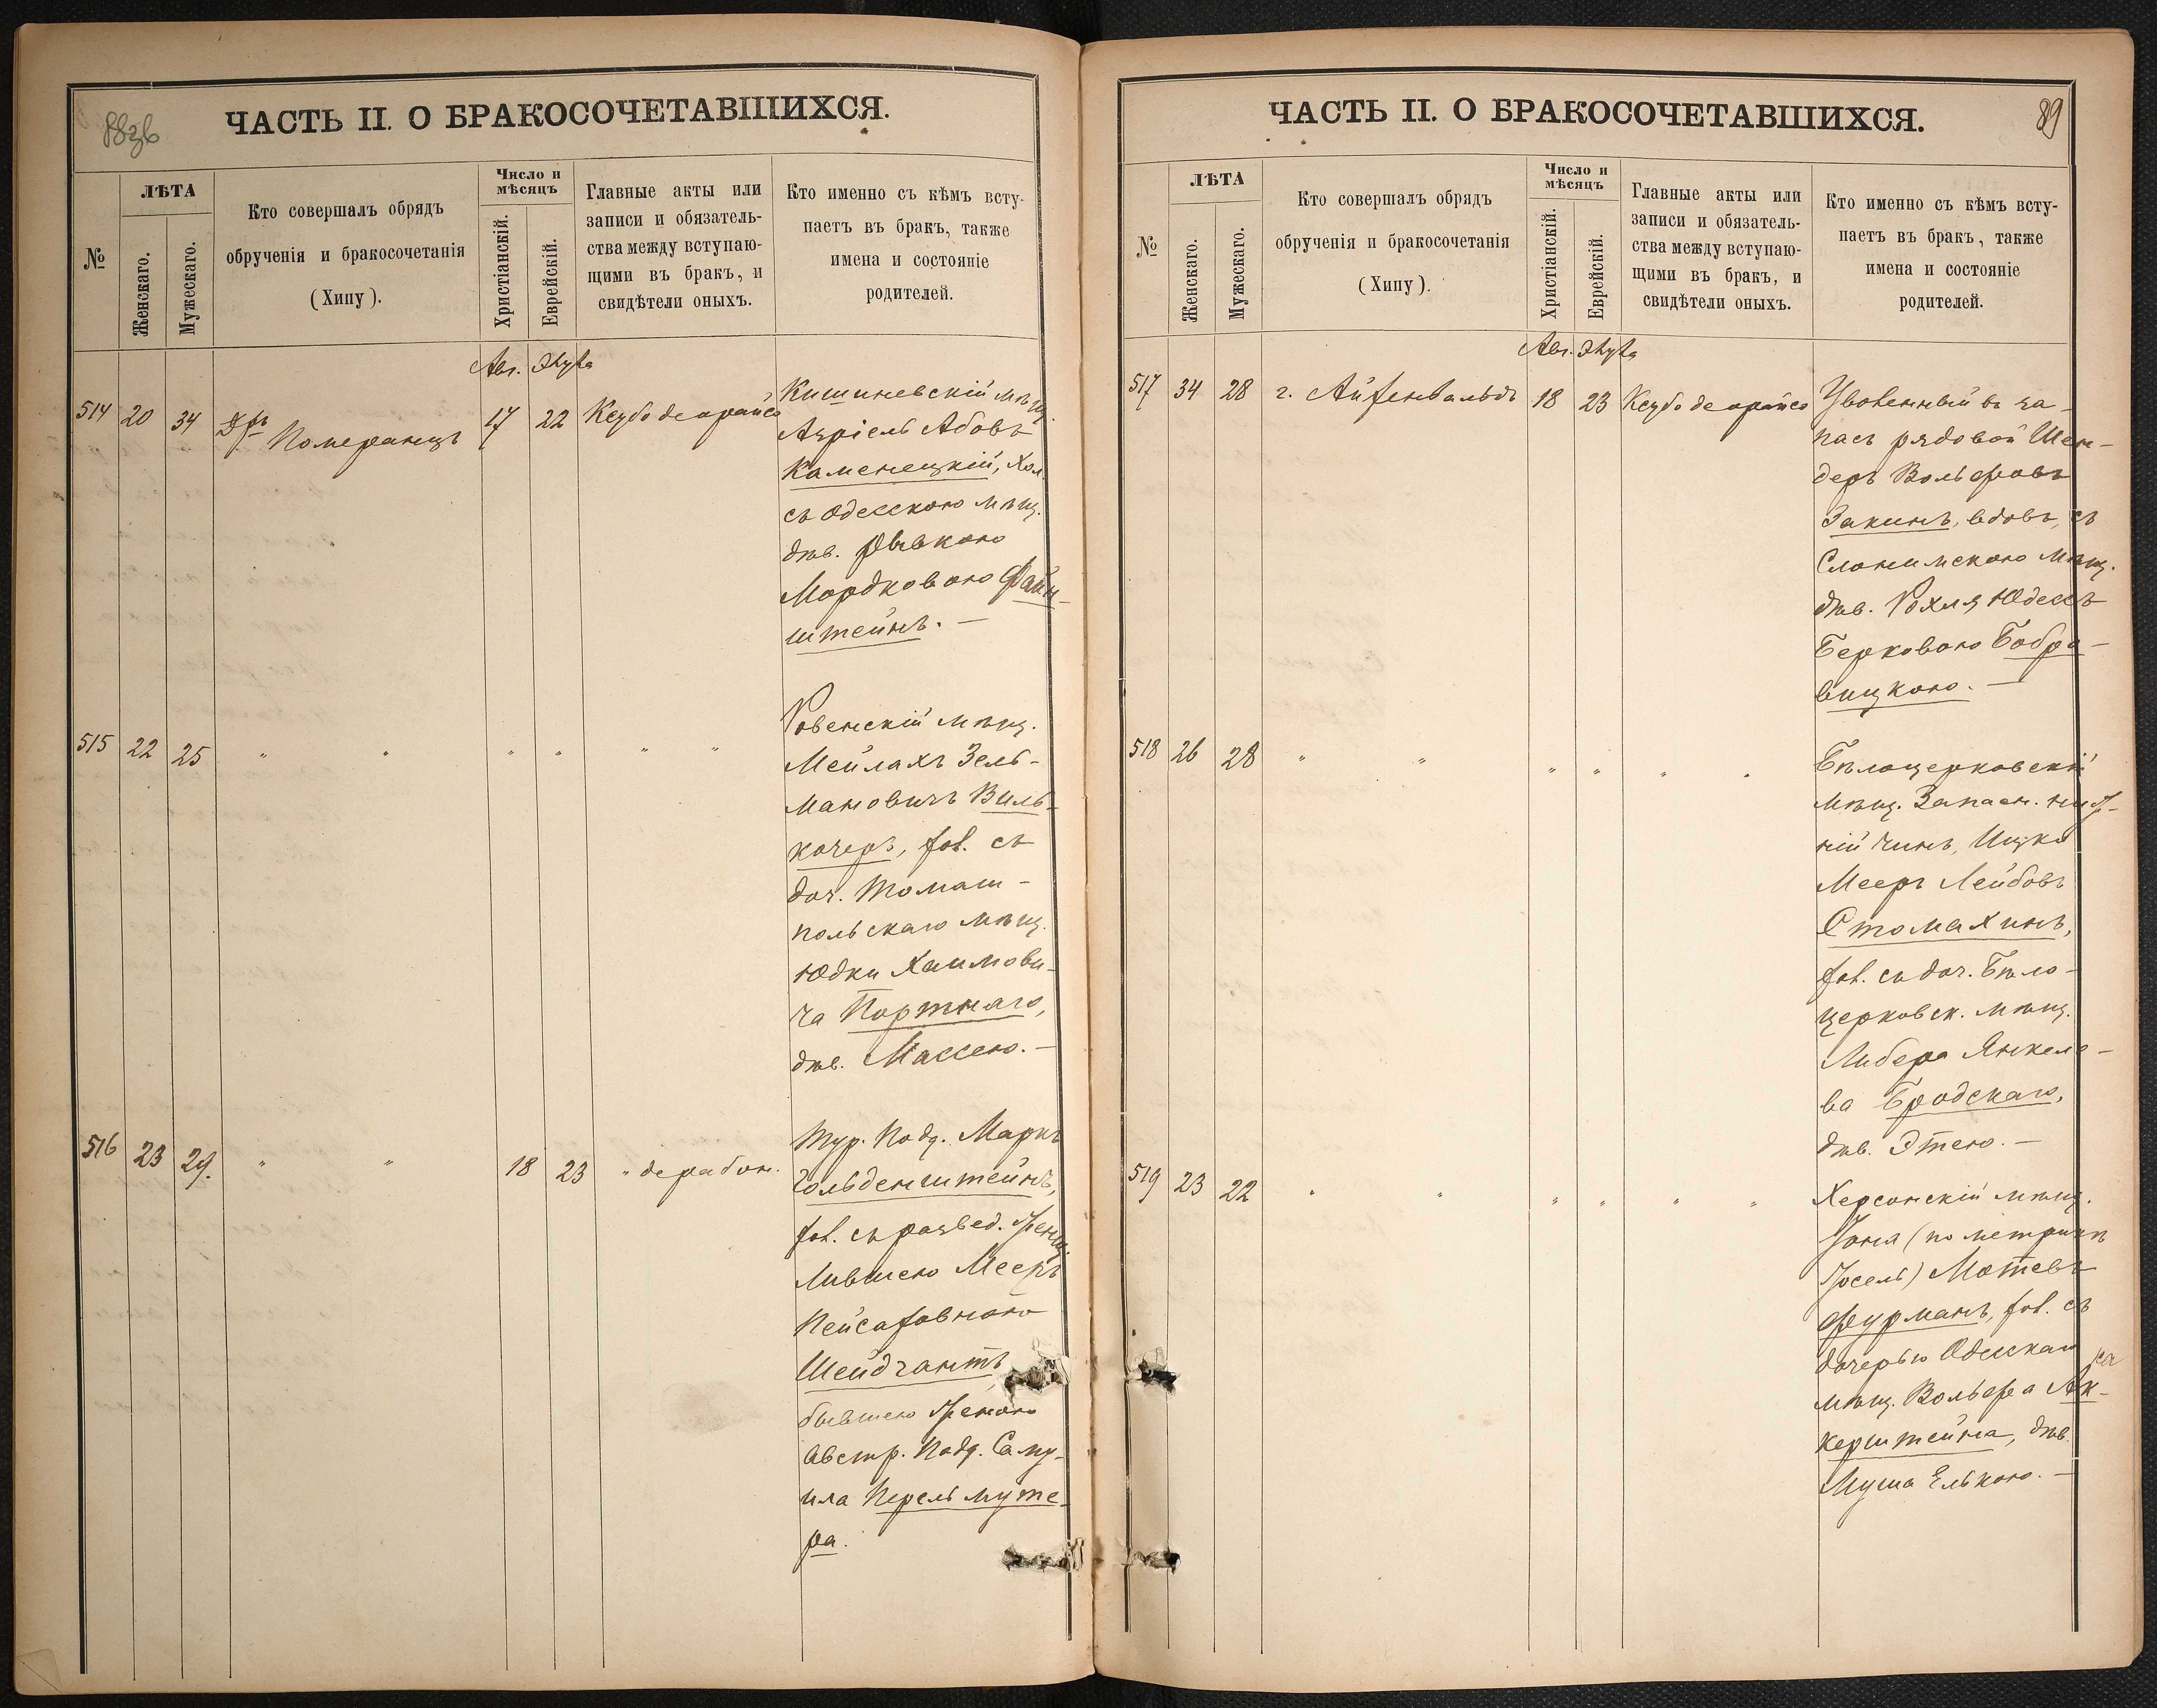 88об
ЧАСТЬ II. О БРАКОСОЧЕТАВШИХСЯ.
№
ЛѢТА
Женскаго.
Мужескаго.
Кто совершалъ обрядъ
обрученія и бракосочетанія
(Хипу).
Число и
мѣсяцъ
Христіанскій.
Еврейскій.
Главные акты или
записи и обязатель-
ства между вступаю-
щими въ бракъ, и
свидѣтели оныхъ.
Кто именно съ кѣмъ всту-
паетъ въ бракъ, также
имена и состояніе
родителей.
Авг.
514 20 34 Др Померанцъ 17 22 Ксубо деорайсо
Кишиневскій мѣщ.
Азріель Абовъ
Каменецкій, хол.
съ Одесскою мѣщ.
дѣв. Ривкою
Мордковою Файн-
штейнъ. —
515 22 25 " " " " " "
Ровенскій мѣщ.
Мейлахъ Зель-
мановичъ Виль-
кочеръ, хол. съ
доч. Томаш-
польскаго мѣщ.
Юдки Хаимови-
ча Портнаго,
дѣв. Массею. —
516 23 29. " " 18 23 " дерабон.
Тур. Подд. Маркъ
Гольденштейнъ,
хол. съ развед. женщ.
Лившею Мееръ
Пейсаховною
Шейдгантъ
бывшею женою
Австр. Подд. Саму-
ила Перельмуте-
ра.
89
ЧАСТЬ II. О БРАКОСОЧЕТАВШИХСЯ.
№
ЛѢТА
Женскаго.
Мужескаго.
Кто совершалъ обрядъ
обрученія и бракосочетанія
(Хипу).
Число и
мѣсяцъ
Христіанскій.
Еврейскій.
Главные акты или
записи и обязатель-
ства между вступаю-
щими въ бракъ, и
свидѣтели оныхъ.
Кто именно съ кѣмъ всту-
паетъ въ бракъ, также
имена и состояніе
родителей.
Авг.
517 34 28 г. Айзенвальдъ 18 23 Ксубо деорайсо
Уволенный въ за-
пасъ рядовой Шен-
деръ Вольфовъ
Закинъ, вдовъ, съ
Слонимскою мѣщ.
дѣв. Рохля Юдесъ
Берковою Бобро-
вицкою. —
518 26 28 " " " " " "
Бѣлоцерковскій
мѣщ. Запасн. ниж-
ній чинъ, Ицко
Мееръ Лейбовъ
Стомахинъ,
хол. съ доч. Бѣло-
церковск. мѣщ.
Либера Янкеле-
ва Бродскаго,
дѣв. Этею. —
519 23 22 " " " " " "
Херсонскій мѣщ.
Іона (по метрикѣ
Іосель) Мотевъ
Фурманъ, хол. съ
дочерью Одесскаго
мѣщ. Вольфа Ак-
керштейна, дѣв.
Муша Елькою. —